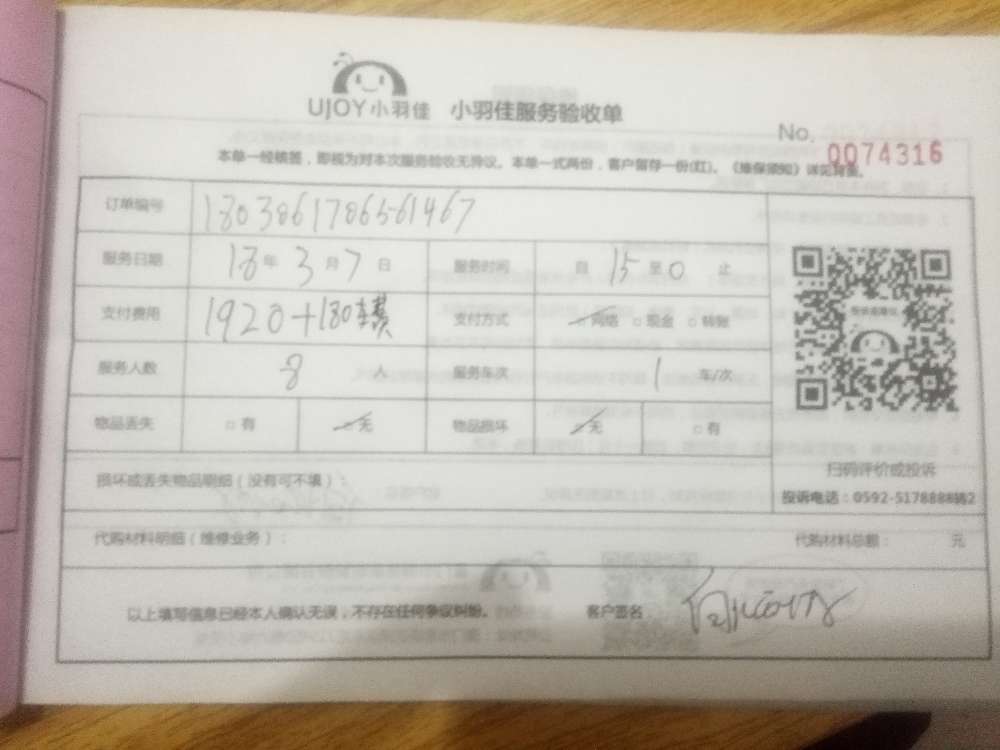 UJOY小羽佳 小羽佳服务验收单
No. 0074316
本单一经核签，即视为对本次服务验收无异议。本单一式两份，客户留存一份(红)。《维保须知》详见背面。
订单编号 1803861786561467
服务日期 18年3月7日 服务时间 自15至0止
支付费用 1920+180车费 支付方式 网络 □现金 □转账
服务人数 8人 服务车次 1车/次
物品丢失 □有 无 物品损坏 无 □有
扫码评价或投诉
损坏或丢失物品明细（没有可不填）：
投诉电话：0592-5178888转2
代购材料明细（维修业务）： 代购材料总额： 元
以上填写信息已经本人确认无误，不存在任何争议纠纷。 客户签名：